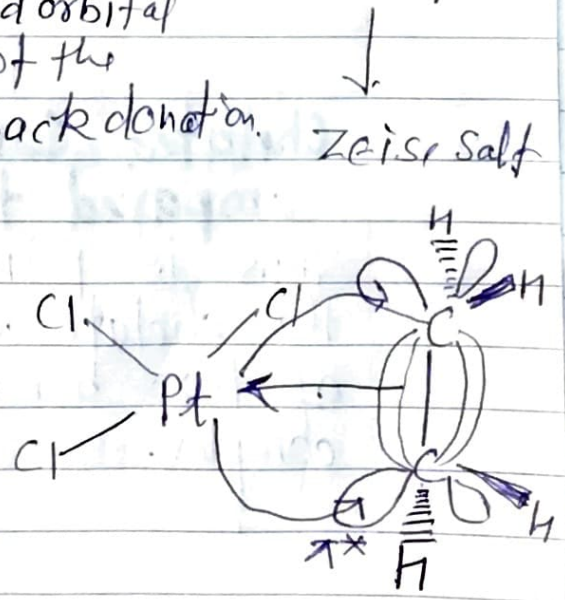 d orbital
of the
ack donation.
Zeise Salt
H
H
Cl
Cl
C
Pt
Cl
C
H
π*
H